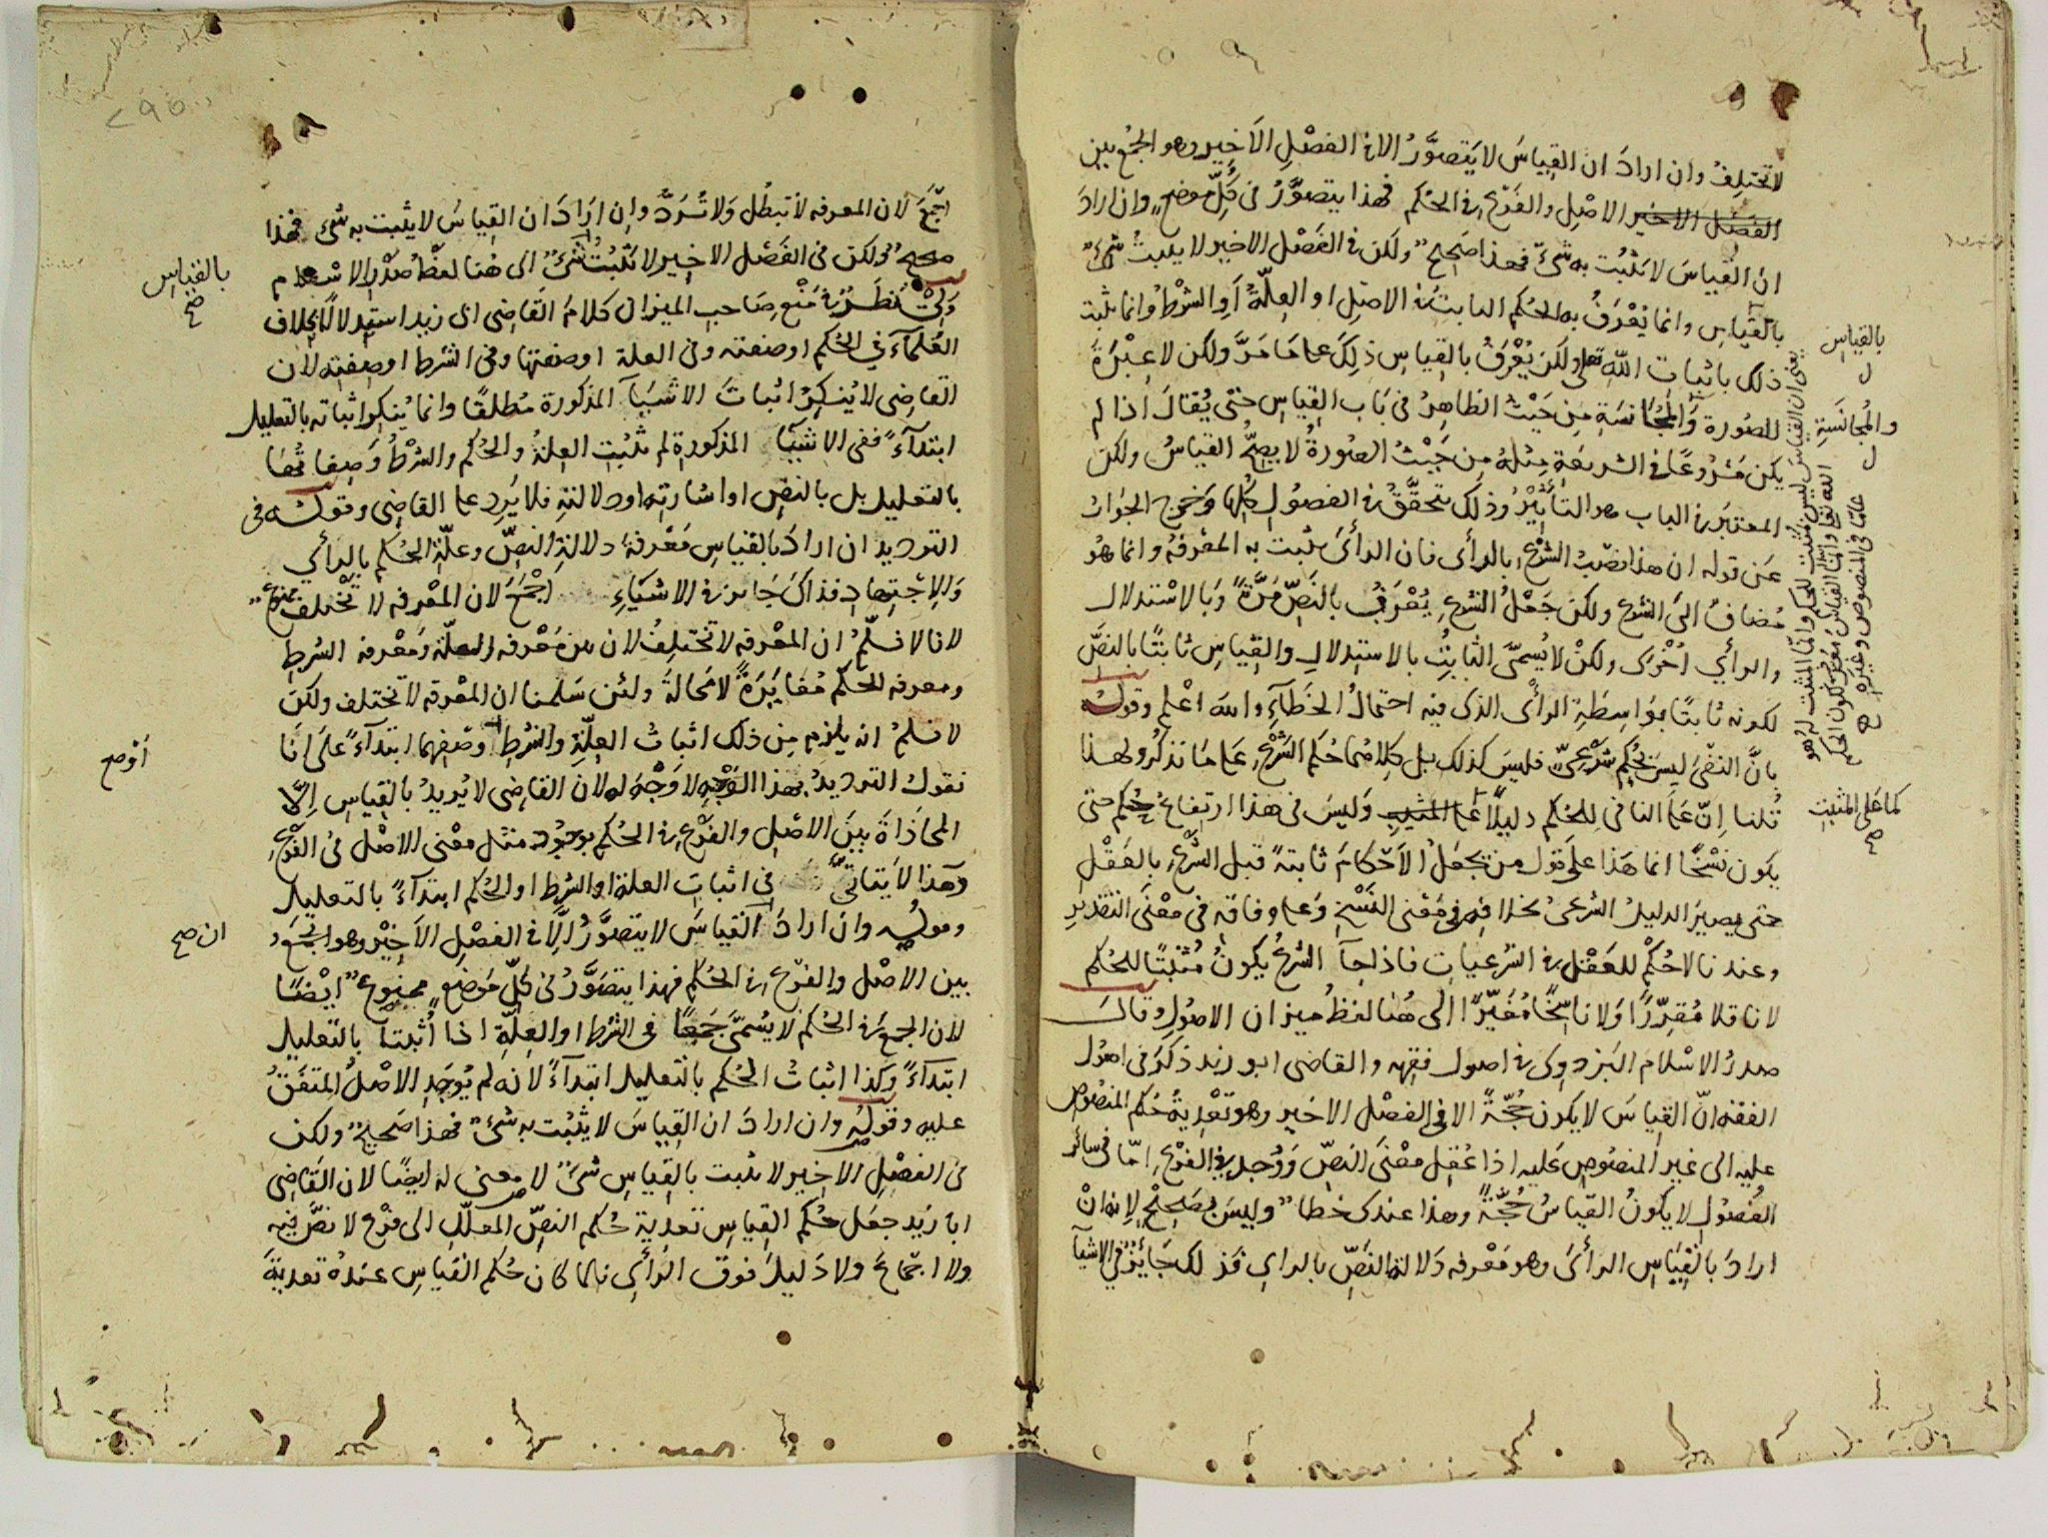 لا تختلف وان اراد ان القياس لا يتصوّر الا في الفصل الاخير وهو الجمع بين
الفصل الاخير الاصل والفرع في الحكم فهذا يتصوّر في كلّ موضع وان اراد
ان القياس لا يثبت به شيء فهذا صحيح ولكن في الفصل الاخير لا يثبت شيء
بالقياس وانما يُعرف به الحكم الثابت في الاصل او العلّة او الشرط وانما يثبت
ذلك باثبات الله تعالى ولكن يُعرف بالقياس ذلك على ما مرّ ولكن لا عبرة
للصورة والمجانسة من حيث الظاهر في باب القياس حتى يُقال اذا لم
يكن مشروعًا في الشريعة مثله من حيث الصورة لا يصحّ القياس ولكن
المعتبر في الباب هو التأثير وذلك يتحقّق في الفصول كلها وخرج الجواب
عن قوله ان هذا نصب الشرع بالرأى فان الرأى يثبت به المعرفة وانما هو
مضاف الى الشرع ولكن جعل الشرع يُعرف بالنصّ مرّة وبالاستدلال
والرأي اخرى ولكن لا يُسمّى الثابت بالاستدلال والقياس ثابتًا بالنصّ
لكونه ثابتًا بواسطة الرأى الذى فيه احتمال الخطاء والله اعلم وقوله
بانّ النفى ليس بحكم شرعيّ فليس كذلك بل كلاهما حكم الشرع على ما نذكر ولهذا
قلنا انّ على النافى للحكم دليلًا على المثبت وليس في هذا ارتفاع حكم حتى
يكون نسخًا انما هذا على قول من يجعل الاحكام ثابتة قبل الشرع بالعقل
حتى يصير الدليل الشرعى بخلافه في معنى النسخ وعلى وفاقه في معنى التقدير
وعندنا لا حكم للعقل في الشرعيات فاذا جآ الشرع يكون مثبتًا للحكم
لا ناقلا مقرّرًا ولا ناسخًا مغيّرًا الى هنا لفظ ميزان الاصول وقال
صدر الاسلام البزدوى في اصول فقهه والقاضى ابو زيد ذكر في اصول
الفقه انّ القياس لا يكون حجّة الا في الفصل الاخير وهو تعدية حكم المنصوص
عليه الى غير المنصوص عليه اذا عقل معنى النصّ ووجد في الفرع امّا في سائر
الفصول لا يكون القياس حجّة وهذا عندى خطا وليس بصحيح لانه انْ
اراد بالقياس الرأى وهو معرفة دلالة النصّ بالراى فذلك جايز في الاشيآ
بالقياس
والمجانسة
يعنى ان القياس ليس بمثبت للحكم وانما المثبت له هو
الله تعالى وانما القياس معرّف لكون الحكم
عامّا في المنصوص وغيره
كما على المثبت
صح
اجمع لان المعرفة لا تبطل ولا تُردّ وان اراد ان القياس لا يثبت به شيء فهذا
صحيح ولكن في الفصل الاخير لا يثبت شيء الى هنا لفظ صدر الاسلام
ولى نظر في منع صاحب الميزان كلام القاضى ابى زيد استدلالًا بخلاف
العلمآء في الحكم او صفته وفى العلة او صفتها وفى الشرط او صفته لان
القاضى لا ينكر اثبات الاشيآ المذكورة مطلقًا وانما ينكر اثباته بالتعليل
ابتدآءً ففى الاشيآ المذكورة لم تثبت العلة والحكم والشرط وصفاتهما
بالتعليل بل بالنص او اشارته او دلالته فلا يرد على القاضى وقوله في
الترديد ان اراد بالقياس معرفة دلالة النصّ وعلّة الحكم بالرأي
والاجتهاد فذاك جايز في الاشياء اجمع لان المعرفة لا تختلف ممنوع
لانا لا نسلّم ان المعرفة لا تختلف لان بين معرفة العلّة ومعرفة الشرط
ومعرفة الحكم مغايرة لا محالة ولئن سلمنا ان المعرفة لا تختلف ولكن
لا نسلم انه يلزم من ذلك اثبات العلّة والشرط وصفهما ابتدآءً على انّا
نقول الترديد بهذا الوجه لا وجه له لان القاضى لا يُريد بالقياس الّا
المحاذاة بين الاصل والفرع في الحكم بوجود مثل معنى الاصل في الفرع
وهذا لا يتاتّى في اثبات العلة او الشرط او الحكم ابتدآءً بالتعليل
وقوله وان اراد القياس لا يتصوّر الّا في الفصل الاخير وهو الجمع
بين الاصل والفرع في الحكم فهذا يتصوّر في كلّ موضع ممنوع ايضًا
لان الجمع في الحكم لا يُسمّى جمعًا في الشرط او العلّة اذا اُثبتا بالتعليل
ابتدآءً وكذا اثبات الحكم بالتعليل ابتدآءً لانه لم يوجد الاصل المتفق
عليه وقوله وان اراد ان القياس لا يثبت به شيء فهذا صحيح ولكن
في الفصل الاخير لا يثبت بالقياس شيء لا معنى له ايضًا لان القاضى
ابا زيد جعل حكم القياس تعدية حكم النصّ المعلّل الى فرع لا نصّ فيه
ولا اجماع ولا دليل فوق الرأى فلما كان حكم القياس عنده تعدية
بالقياس
صح
أو صح
ان صح